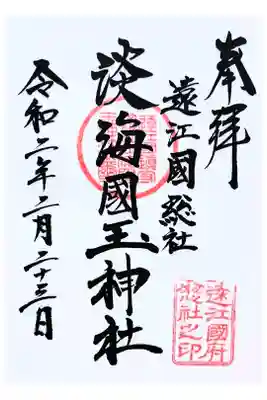 奉拝
遠江國総社
淡海國玉神社
令和二年二月二十三日
遠江國府
総社之印